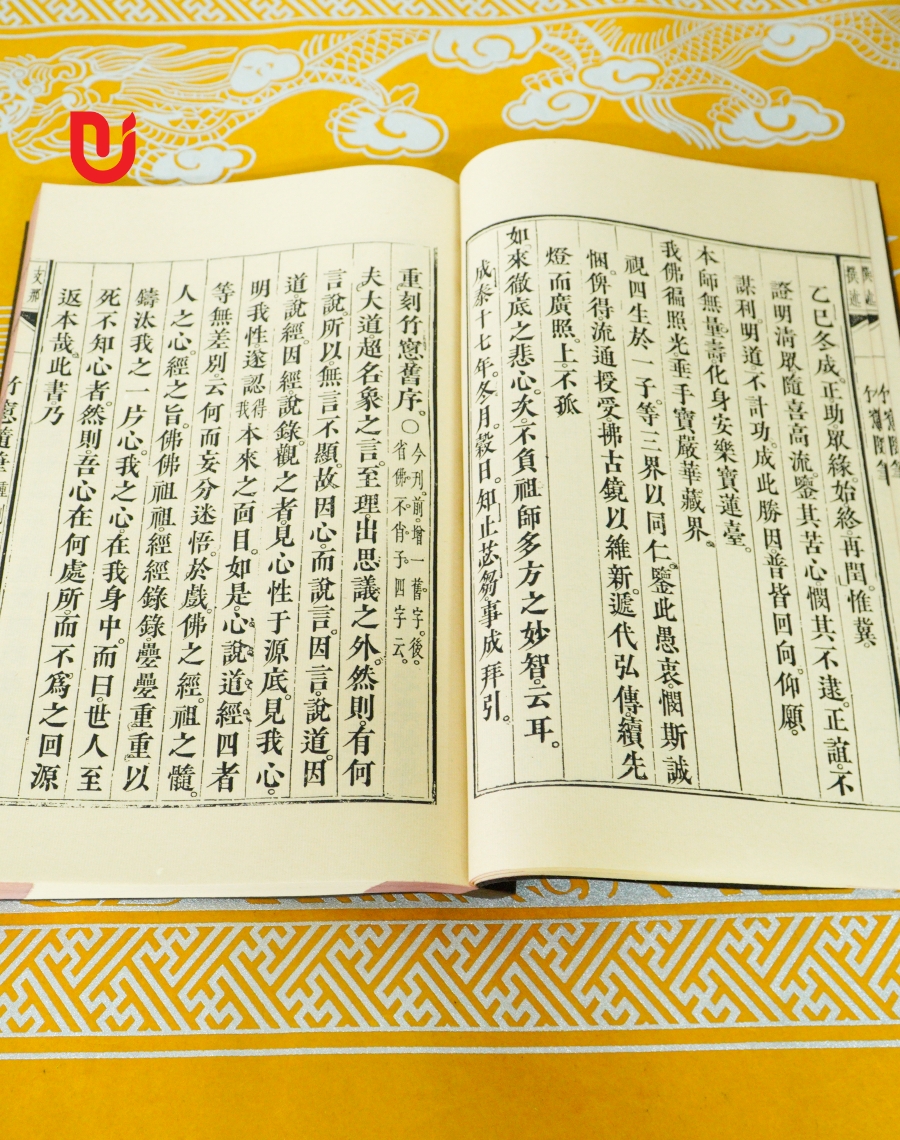 乙巳冬成。正助。眾緣。始終。再閏。惟冀。
證明清眾隨喜高流。鑒其苦心。憫其不逮。正誼。不
謀利。明道。不計功。成此勝因。普皆回向。仰願。
本師無量壽化身安樂寶蓮臺。
我佛徧照光垂手寶嚴華藏界。
視四生於一子。等三界以同仁。鑒此愚衷。憫斯誠
悃。俾得流通授受。拂古鏡以維新。遞代弘傳。續先
燈而廣照。上。不孤
如來徹底之悲心。次。不負祖師多方之妙智。云耳。
成泰十七年。冬月。穀日。知止苾芻。事成拜引。
重刻竹窻舊序。○今刊。前。增一舊字。後。
省佛。不肖子。四字云。
夫。大道超名象之言。至理。出思議之外。然則。有何
言說。所以無言不顯。故因心。而說言。因言。說道。因
道說經。因經說錄。觀之者。見心性于源底。見我心。
明我性遂認得我本來之面目。如是。心說道經四者
等無差別。云何而妄分迷悟。於戲。佛之經。祖之髓。
人之心。經之旨。佛佛祖祖。經經錄錄。疊疊重重。以
鑄汰我之一片心。我之心。在我身中。而曰。世人至
死不知心者。然則。吾心在何處所。而不。爲之回源
返本哉。此書乃
支那
竹窻隨筆